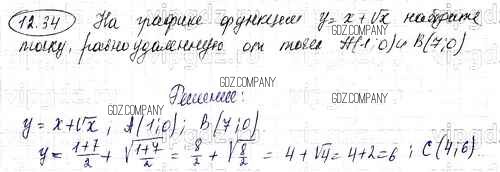 12.34 На графике функции y = x + √x найдите
точку, равноудаленную от точек A(1;0) и B(7;0)
GDZ.COMPANY
GDZ.COMPANY
Решение:
GDZ.COMPANY
y = x + √x ; A(1;0); B(7;0)
GDZ.COMPANY
y = (1+7)/2 + √((1+7)/2) = 8/2 + √(8/2) = 4 + √4 = 4+2=6 ; C(4;6).